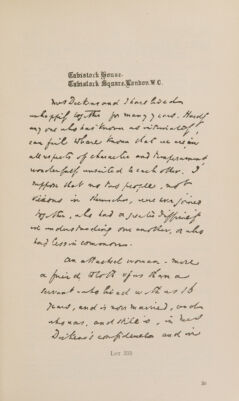 Tavistock House.
Tavistock Square. London. W.C.
Mrs Dickens and I have lived
unhappily together for many years. Hardly
any one who has known us intimately
can fail to have known that we are in
all respects of character and temperament
wonderfully unsuited to each other. I
suppose that no two people, not
vicious in themselves, were ever joined
together, who had a greater difficulty
in understanding one another, or who
had less in common.
An attached woman - more
a friend to both of us than a
servant - who lived with us 16
years, and is now married, and
who was, and still is, in Mrs
Dickens's confidence and in
Lot 333